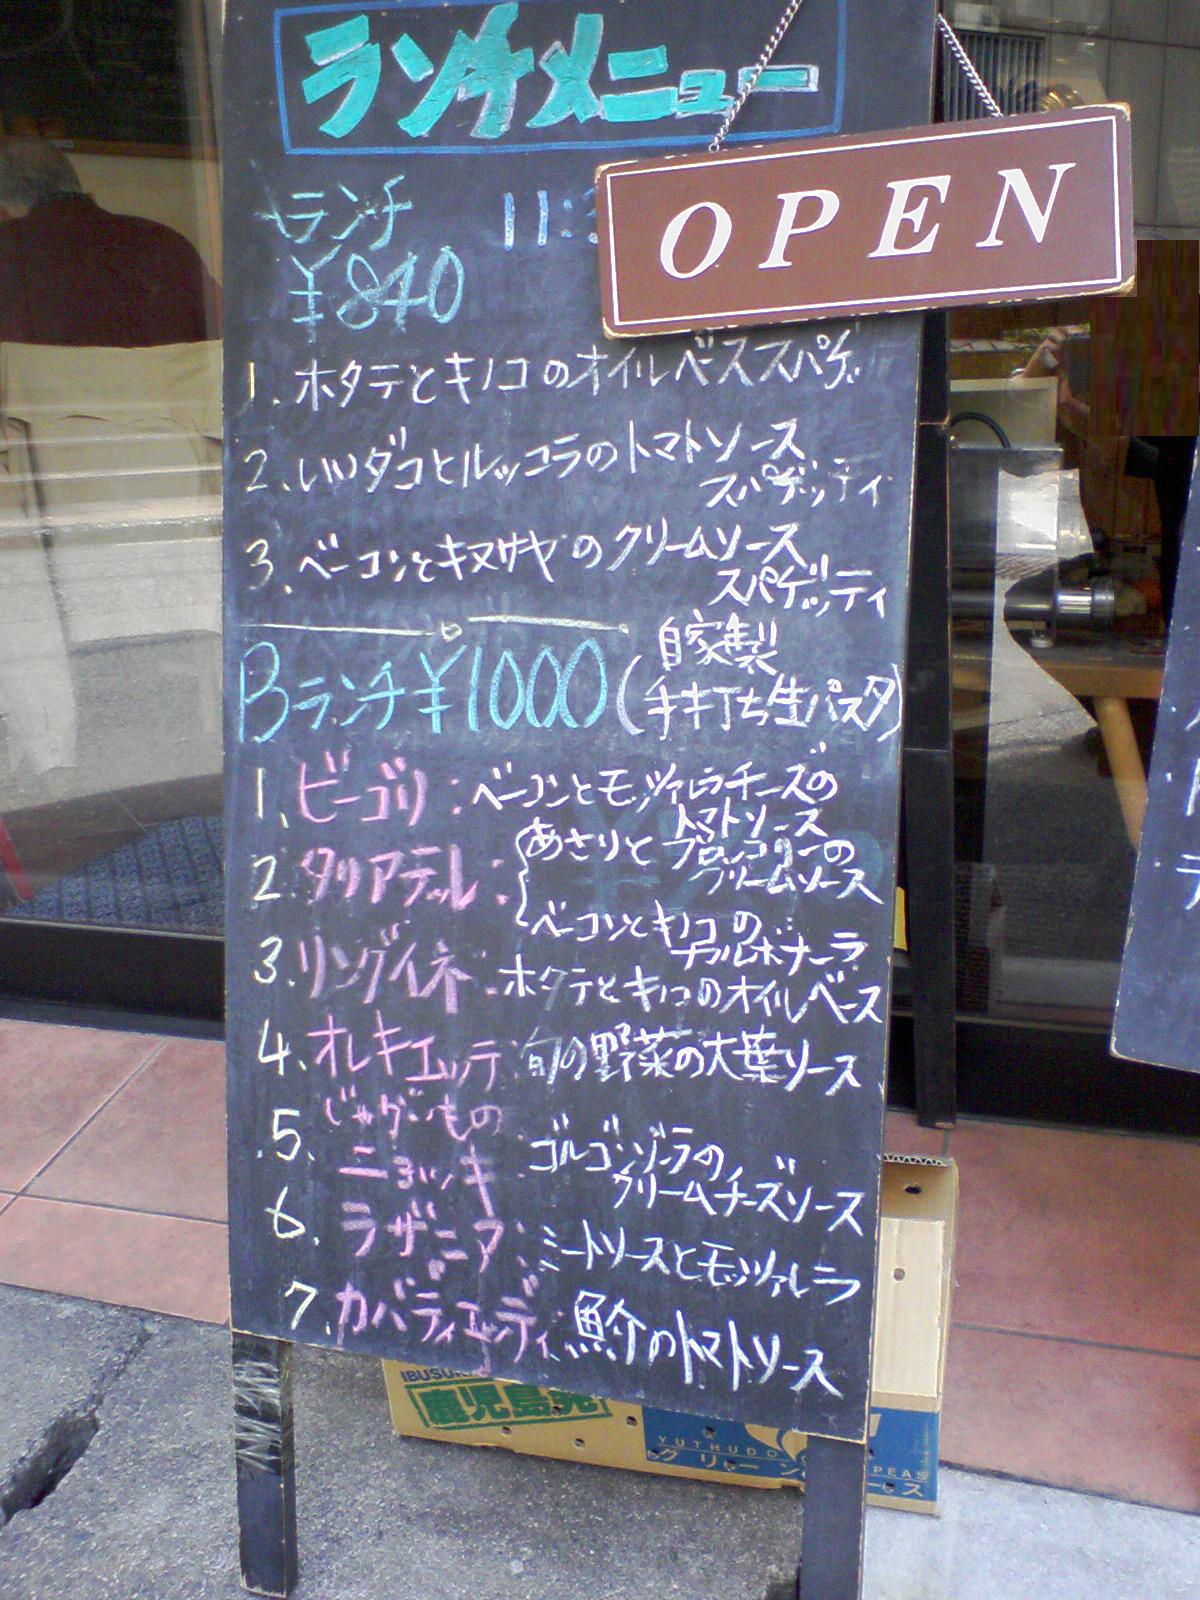 ランチメニュー
OPEN
ランチ 11:3
¥840
1. ホタテとキノコのオイルベーススパゲ
2. いいダコとルッコラのトマトソース
スパゲッティ
3. ベーコンとキヌサヤのクリームソース
スパゲッティ
Bランチ ¥1000 (自家製
手打ち生パスタ)
1. ビーゴリ: ベーコンとモッツァレラチーズの
トマトソース
2. タリアテッレ: あさりとブロッコリーの
クリームソース
ベーコンとキノコの
カルボナーラ
3. リングイネ: ホタテとキノコのオイルベース
4. オレキエッテ: 旬の野菜の大葉ソース
5. じゃがいもの
ニョッキ ゴルゴンゾーラの
クリームチーズソース
6. ラザーニア: ミートソースとモッツァレラ
7. カバティエッディ: 魚介のトマトソース
鹿児島発
YUTHUDO
グリーン
PEAS
ース